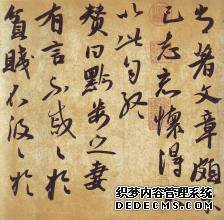 著文章頗
己志忘懷得
以此自終
贊曰黔婁之妻
有言不戚〻於
貧賤不汲〻於
织梦内容管理系统
DEDECMS.COM